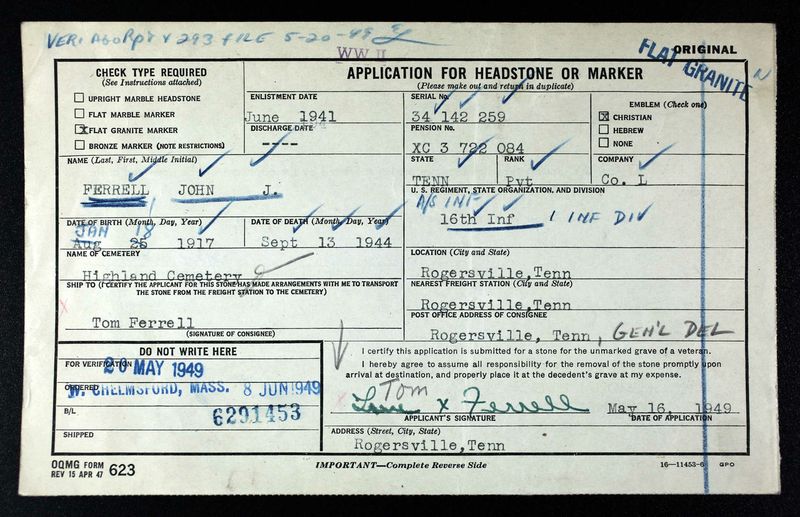 VERI AGO Rpt & 293 FILE 5-20-49
WW II
ORIGINAL
FLAT GRANITE
CHECK TYPE REQUIRED
(See Instructions attached)
UPRIGHT MARBLE HEADSTONE
FLAT MARBLE MARKER
X FLAT GRANITE MARKER
BRONZE MARKER (NOTE RESTRICTIONS)
APPLICATION FOR HEADSTONE OR MARKER
(Please make out and return in duplicate)
ENLISTMENT DATE
June 1941
DISCHARGE DATE
----
SERIAL No.
34 142 259
PENSION No.
XC 3 722 084
EMBLEM (Check one)
X CHRISTIAN
HEBREW
NONE
NAME (Last, First, Middle Initial)
FERRELL JOHN J.
STATE
TENN
RANK
Pvt
COMPANY
Co. L
U. S. REGIMENT, STATE ORGANIZATION, AND DIVISION
A/S INF
16th Inf 1 INF DIV
DATE OF BIRTH (Month, Day, Year)
JAN 18
Aug 25 1917
DATE OF DEATH (Month, Day, Year)
Sept 13 1944
NAME OF CEMETERY
Highland Cemetery
LOCATION (City and State)
Rogersville,Tenn
SHIP TO (I CERTIFY THE APPLICANT FOR THIS STONE HAS MADE ARRANGEMENTS WITH ME TO TRANSPORT
THE STONE FROM THE FREIGHT STATION TO THE CEMETERY)
Tom Ferrell
(SIGNATURE OF CONSIGNEE)
NEAREST FREIGHT STATION (City and State)
Rogersville,Tenn
POST OFFICE ADDRESS OF CONSIGNEE
Rogersville, Tenn, GEN'L DEL
DO NOT WRITE HERE
FOR VERIFICATION
20 MAY 1949
ORDERED
W. CHELMSFORD, MASS. 8 JUN 1949
B/L
6291453
SHIPPED
I certify this application is submitted for a stone for the unmarked grave of a veteran.
I hereby agree to assume all responsibility for the removal of the stone promptly upon
arrival at destination, and properly place it at the decedent's grave at my expense.
Tom
x Ferrell
May 16, 1949
APPLICANT'S SIGNATURE
DATE OF APPLICATION
ADDRESS (Street, City, State)
Rogersville,Tenn
OQMG FORM
REV 15 APR 47 623
IMPORTANT—Complete Reverse Side
16—11453-6 GPO